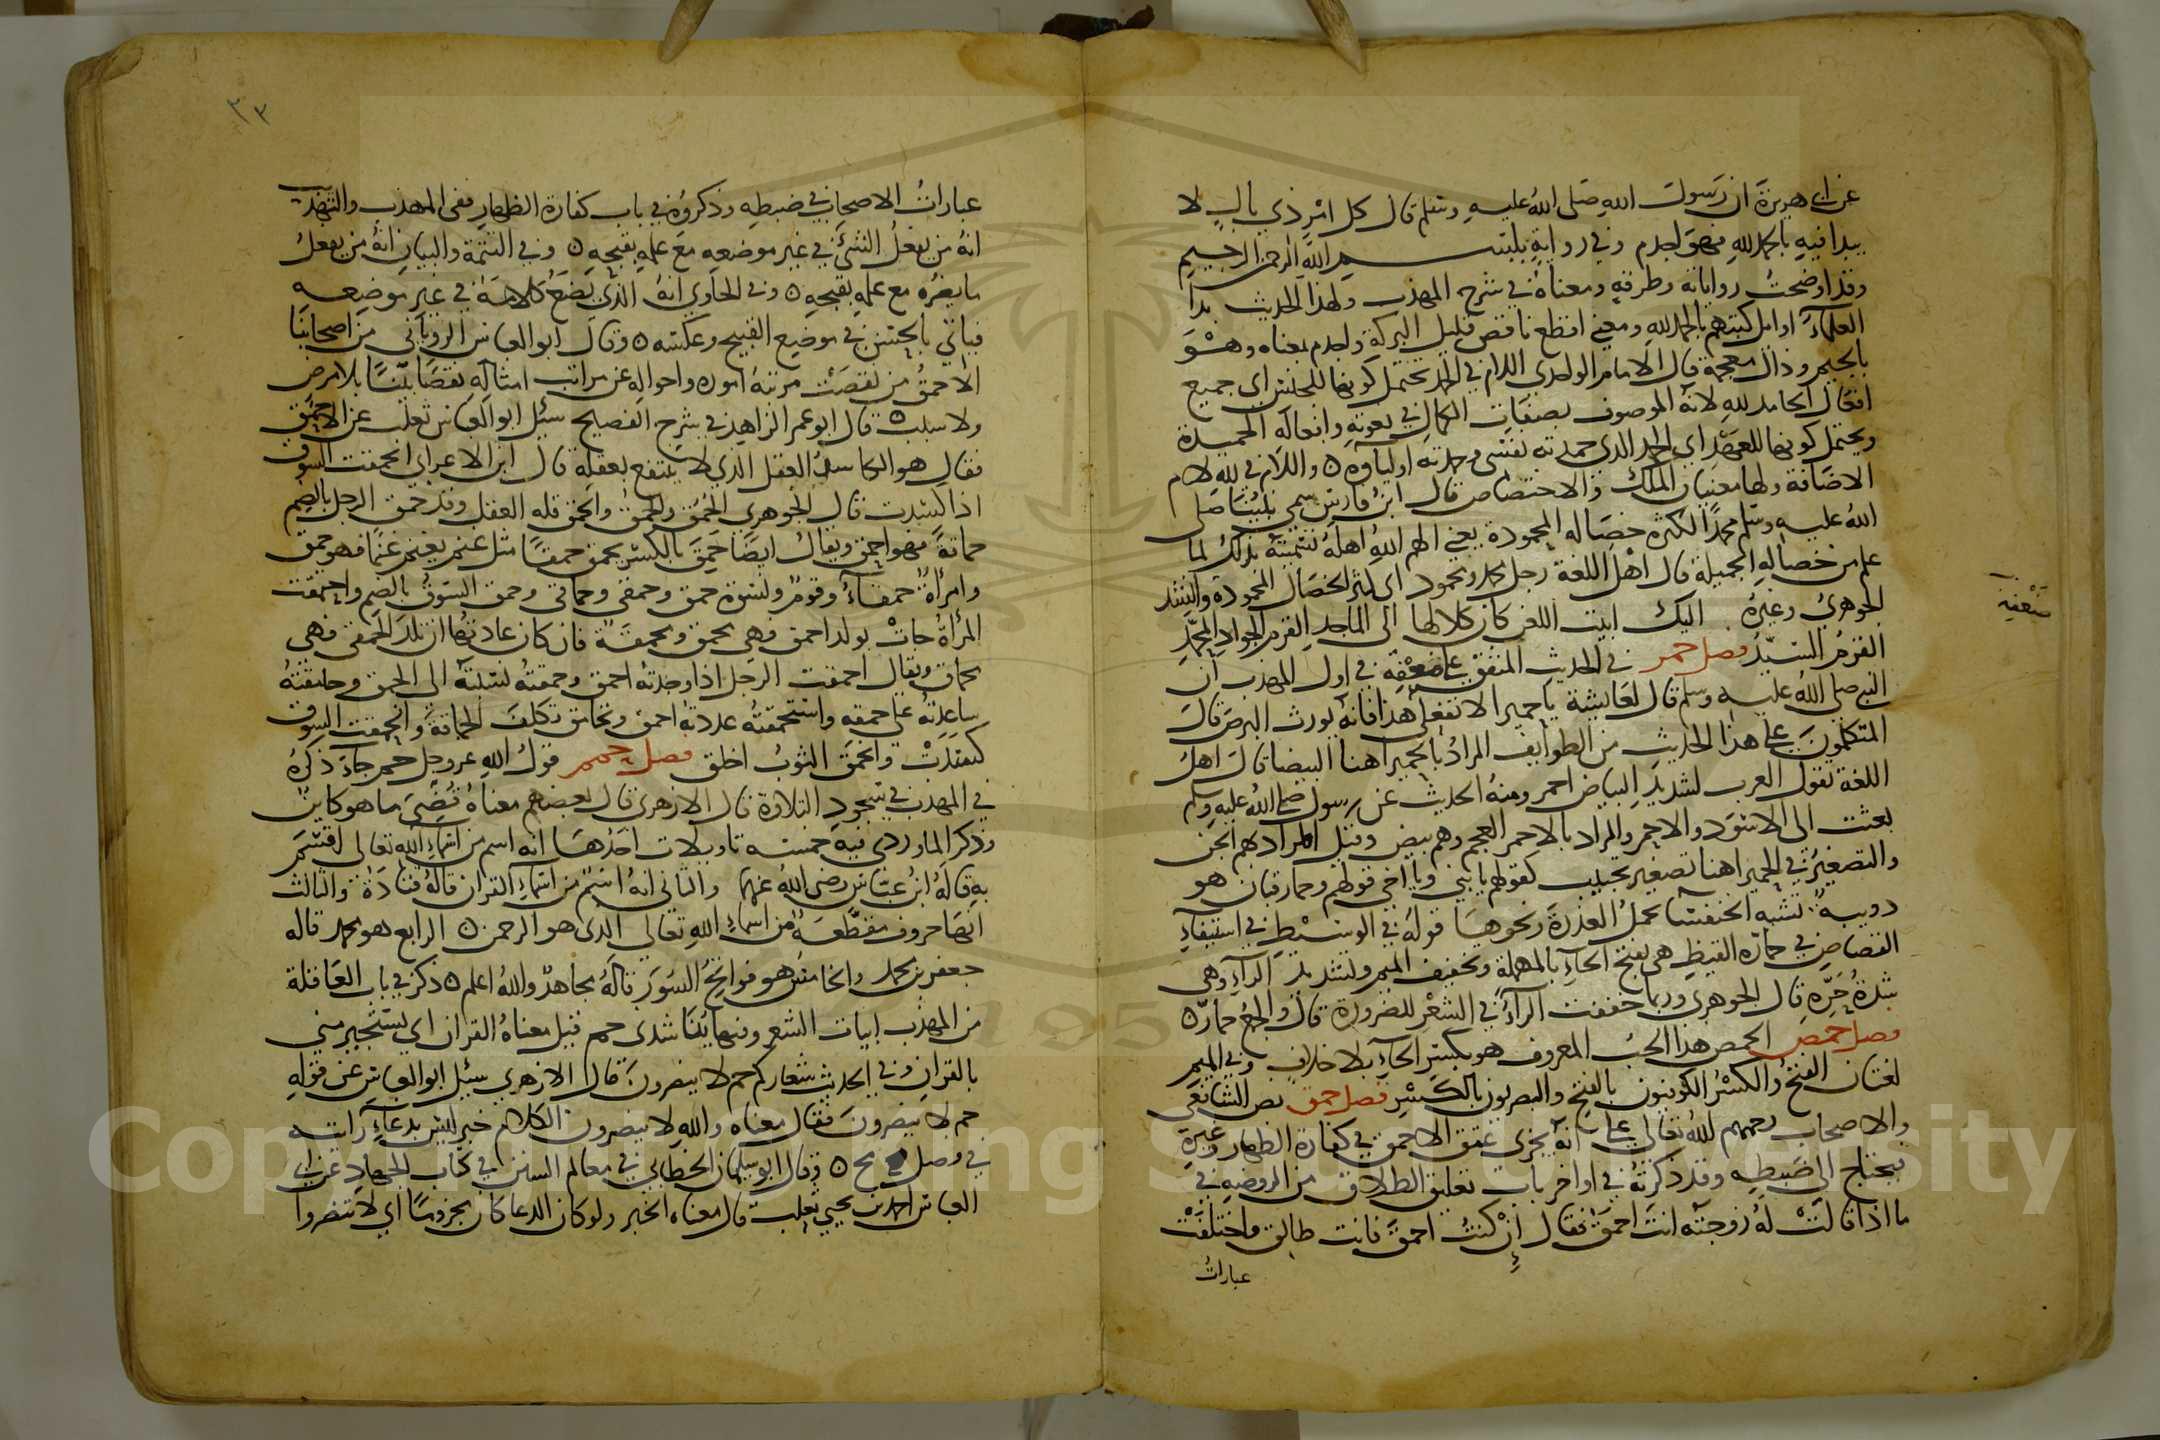 عن ابي هريرة ان رسول الله صلى الله عليه وسلم قال كل امر ذي بال لا
يبدا فيه بالحمد لله فهو اجذم وفي رواية ببسم الله الرحمن الرحيم
وقد اوضحت رواياته وطرقه ومعناه في شرح المهذب ولهذا الحديث بدا
العلماء اوايل كتبهم بالحمد لله ومعنى اقطع ناقص قليل البركة واجذم بمعناه وهو
بالجيم وذال معجمة قال الامام الواحدي اللام في الحمد يحتمل كونها للجنس اي جميع
افعال المحامد لله لانه الموصوف بصفات الكمال في نعوته وافعاله الحميدة
ويحتمل كونها للعهد اي الحمد الذي حمد به نفسه وحمده به اولياوه ٥ واللام في لله لام
الاضافة ولها معنيان الملك والاختصاص قال ابن فارس سمي نبينا صلى
الله عليه وسلم محمدا لكثرة خصاله المحمودة يعني الهم الله اهله تسميته بذلك لما
علم من خصاله الجميلة قال اهل اللغة رجل محمد ومحمود اي كثير الخصال المحمودة وانشد
الجوهري وغيره اليك ابيت اللعن كان كلالها الى الماجد القرم الجواد المحمد
القرم السيد فصل حمر في الحديث المتفق على ضعفه في اول المهذب ان
ضعفه
النبي صلى الله عليه وسلم قال لعايشة يا حميرا لا تفعلي هذا فانه يورث البرص قال
المتكلمون على هذا الحديث من الطوايف المراد بالحميرا هنا البيضا قال اهل
اللغة تقول العرب لشديد البياض احمر ومنه الحديث عن رسول الله صلى الله عليه وسلم
بعثت الى الاسود والاحمر والمراد بالاحمر العجم وهم بيض وقيل المراد بهم الجن
والتصغير في الحميرا هنا تصغير تحبيب كقولهم يا بني ويا اخي قولهم وحمار قبان هو
دويبة تشبه الخنفسا تحمل العذرة ونحوها قوله في الوسيط في استيفاء
القصاص في حمارة القيظ هي بفتح الحاء بالمهملة وتخفيف الميم وتشديد الراء وهي
شدة حره قال الجوهري وربما خففت الراء في الشعر للضرورة قال والجمع حمار ٥
فصل حمص الحمص هذا الحب المعروف هو بكسر الحاء بلا خلاف وفي الميم
لغتان الفتح والكسر الكوفيون بالفتح والبصريون بالكسر فصل حمق نص الشافعي
والاصحاب رحمهم الله تعالى على انه يجزى عتق الاحمق في كفارة الظهار وغيره
فيحتاج الى ضبطه وقد ذكرته في اواخر باب تعليق الطلاق من الروضة في
ما اذا قالت له زوجته انت احمق فقال ان كنت احمق فانت طالق واختلفت
عبارات
٣٢
عبارات الاصحاب في ضبطه وذكروه في باب كفارة الظهار ففي المهذب والتهذيب
انه من يفعل الشئ في غير موضعه مع علمه بقبحه ٥ وفي التتمة والبيان انه من يفعل
ما يضره مع علمه بقبحه ٥ وفي الحاوي انه الذي يضع كلامه في غير موضعه
فياتي بالحسن في موضع القبيح وعكسه ٥ وقال ابو العباس الروياني من اصحابنا
الاحمق من نقصت مرتبة اموره واحواله عن مراتب امثاله نقصا بينا بلا مرض
ولا سبب ٥ قال ابو عمر الزاهد في شرح الفصيح سئل ابو العباس ثعلب عن الاحمق
فقال هو الكاسد العقل الذي لا ينتفع بعقله قال ابن الاعرابي انحمقت السوق
اذا كسدت قال الجوهري الحمق والحمق والحمق قلة العقل وقد حمق الرجل بالضم
حماقة فهو احمق ويقال ايضا حمق بالكسر يحمق حمقا مثل غنم يغنم غنما فهو حمق
وامرأة حمقاء وقوم ونسوة حمق وحمقى وحماقى وحمق السوق بالضم واحمقت
المرأة جات بولد احمق فهي محمق ومحمقة فان كان عادتها ان تلد الحمقى فهي
محماق ويقال احمقت الرجل اذا وجدته احمق وحمقته نسبته الى الحمق وحامقته
ساعدته على حمقه واستحمقته عددته احمق وتحامق تكلف الحماقة وانحمقت السوق
كسدت وانحمق الثوب اخلق فصل حمم قول الله عز وجل حم جاء ذكره
في المهذب في سجود التلاوة قال الازهري قال بعضهم معناه قضي ما هو كاين
وذكر الماوردي فيه خمسة تاويلات احدها انه اسم من اسماء الله تعالى اقسم
به قاله ابن عباس رضي الله عنهما والثاني انه اسم من اسماء القران قاله قتادة والثالث
انها حروف مقطعة من اسماء الله تعالى الذي هو الرحمن ٥ الرابع هو محمد قاله
جعفر بن محمد والخامس هو فواتح السور قاله مجاهد والله اعلم ٥ ذكر في باب العاقلة
من المهذب ابيات الشعر ومنها يناشدني حم قيل معناه القران اي يستجير مني
بالقران وفي الحديث شعاركم حم لا ينصرون قال الازهري سئل ابو العباس عن قوله
حم لا ينصرون فقال معناه والله لا ينصرون الكلام خبر ليس بدعاء رايته
في فصل ح ٥ وقال ابو سليمان الخطابي في معالم السنن في كتاب الجهاد عن ابي
العباس احمد بن يحيى ثعلب قال معناه الخبر ولو كان الدعا كان مجزوما اي لا تنصروا
Copyright © King Saud University